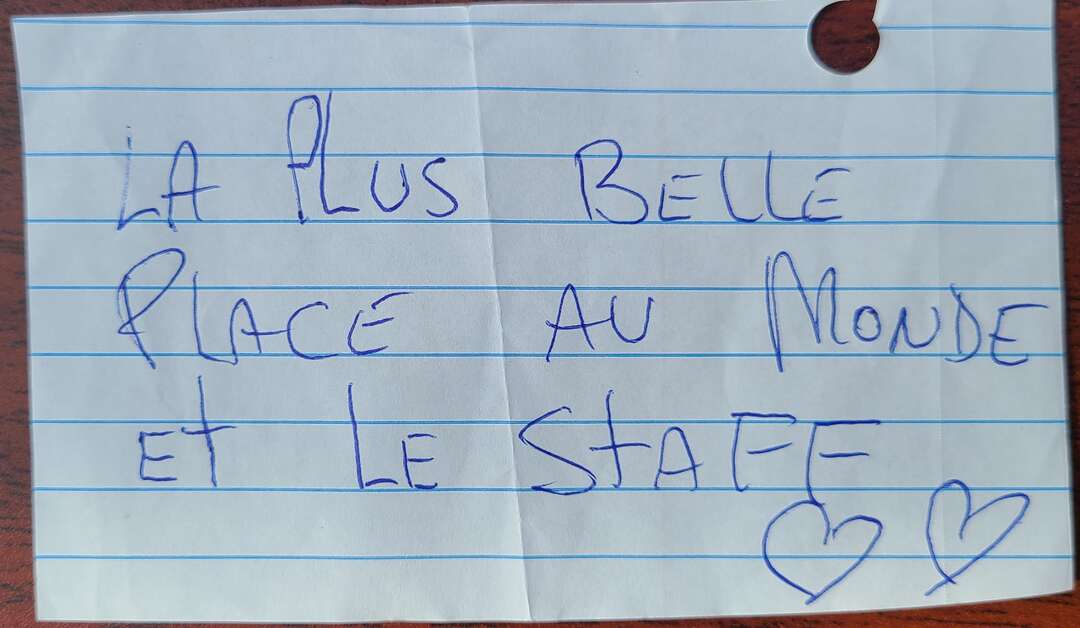 LA PLUS BELLE
PLACE AU MONDE
ET LE STAFF